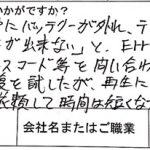 かがですか?
にバッテリーが外れ、テ
が出来ない」と、EH
スコード等を問い合わ
を試したが、再生に
依頼して時間は短くな
会社名またはご職業